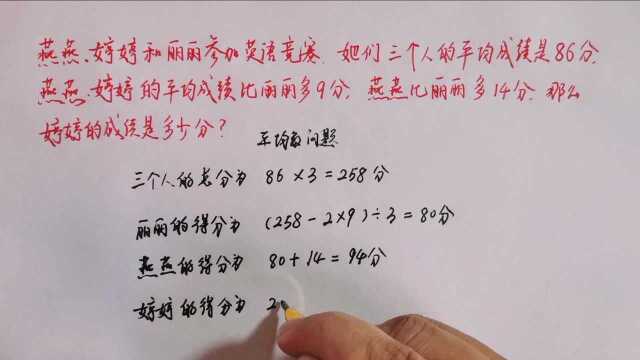 燕燕、婷婷和丽丽参加英语竞赛,她们三个人的平均成绩是86分,
燕燕、婷婷的平均成绩比丽丽多9分,燕燕比丽丽多14分,那么
婷婷的成绩是多少分?
平均数问题
三个人的总分为 86×3=258分
丽丽的得分为 (258-2×9)÷3=80分
燕燕的得分为 80+14=94分
婷婷的得分为 2